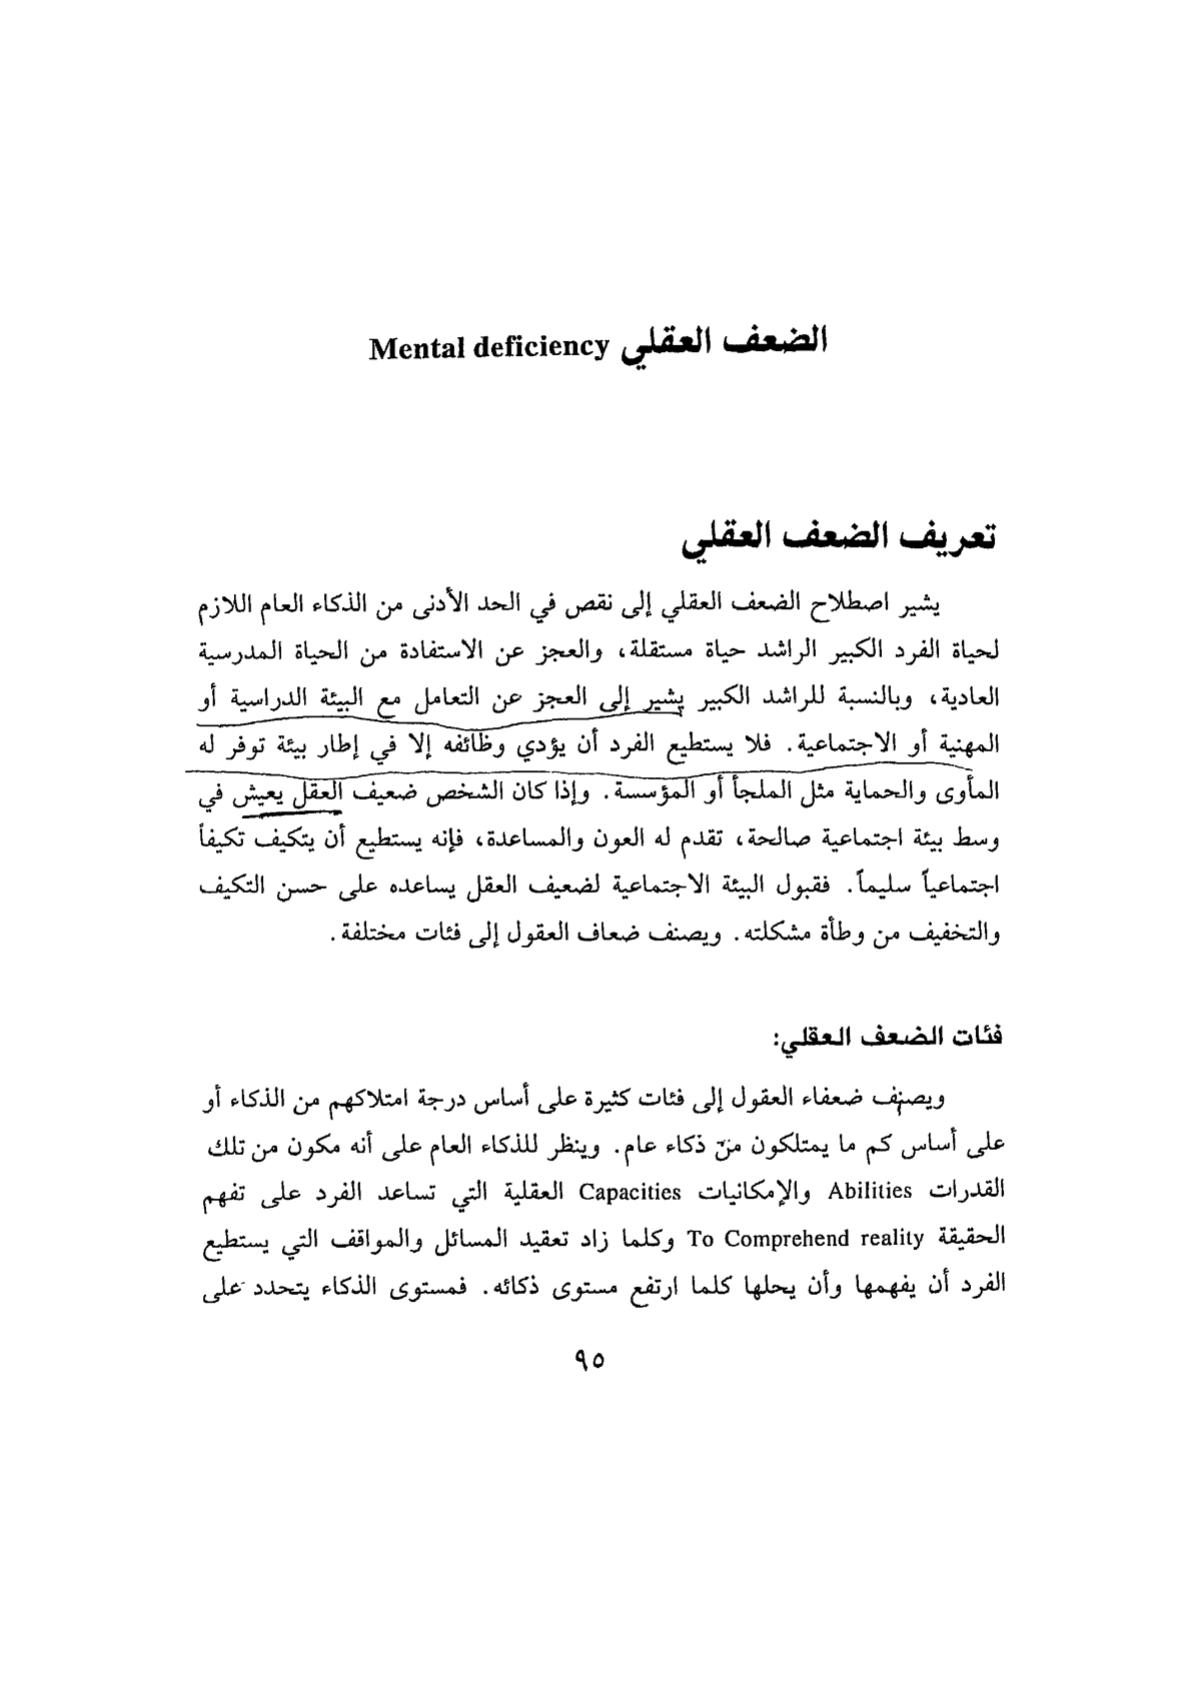 الضعف العقلي Mental deficiency
تعريف الضعف العقلي
يشير اصطلاح الضعف العقلي إلى نقص في الحد الأدنى من الذكاء العام اللازم
لحياة الفرد الكبير الراشد حياة مستقلة، والعجز عن الاستفادة من الحياة المدرسية
العادية، وبالنسبة للراشد الكبير يشير إلى العجز عن التعامل مع البيئة الدراسية أو
المهنية أو الاجتماعية. فلا يستطيع الفرد أن يؤدي وظائفه إلا في إطار بيئة توفر له
المأوى والحماية مثل الملجأ أو المؤسسة. وإذا كان الشخص ضعيف العقل يعيش في
وسط بيئة اجتماعية صالحة، تقدم له العون والمساعدة، فإنه يستطيع أن يتكيف تكيفاً
اجتماعياً سليماً. فقبول البيئة الاجتماعية لضعيف العقل يساعده على حسن التكيف
والتخفيف من وطأة مشكلته. ويصنف ضعاف العقول إلى فئات مختلفة.
فئات الضعف العقلي:
ويصنف ضعفاء العقول إلى فئات كثيرة على أساس درجة امتلاكهم من الذكاء أو
على أساس كم ما يمتلكون من ذكاء عام. وينظر للذكاء العام على أنه مكون من تلك
القدرات Abilities والإمكانيات Capacities العقلية التي تساعد الفرد على تفهم
الحقيقة To Comprehend reality وكلما زاد تعقيد المسائل والمواقف التي يستطيع
الفرد أن يفهمها وأن يحلها كلما ارتفع مستوى ذكائه. فمستوى الذكاء يتحدد على
٩٥